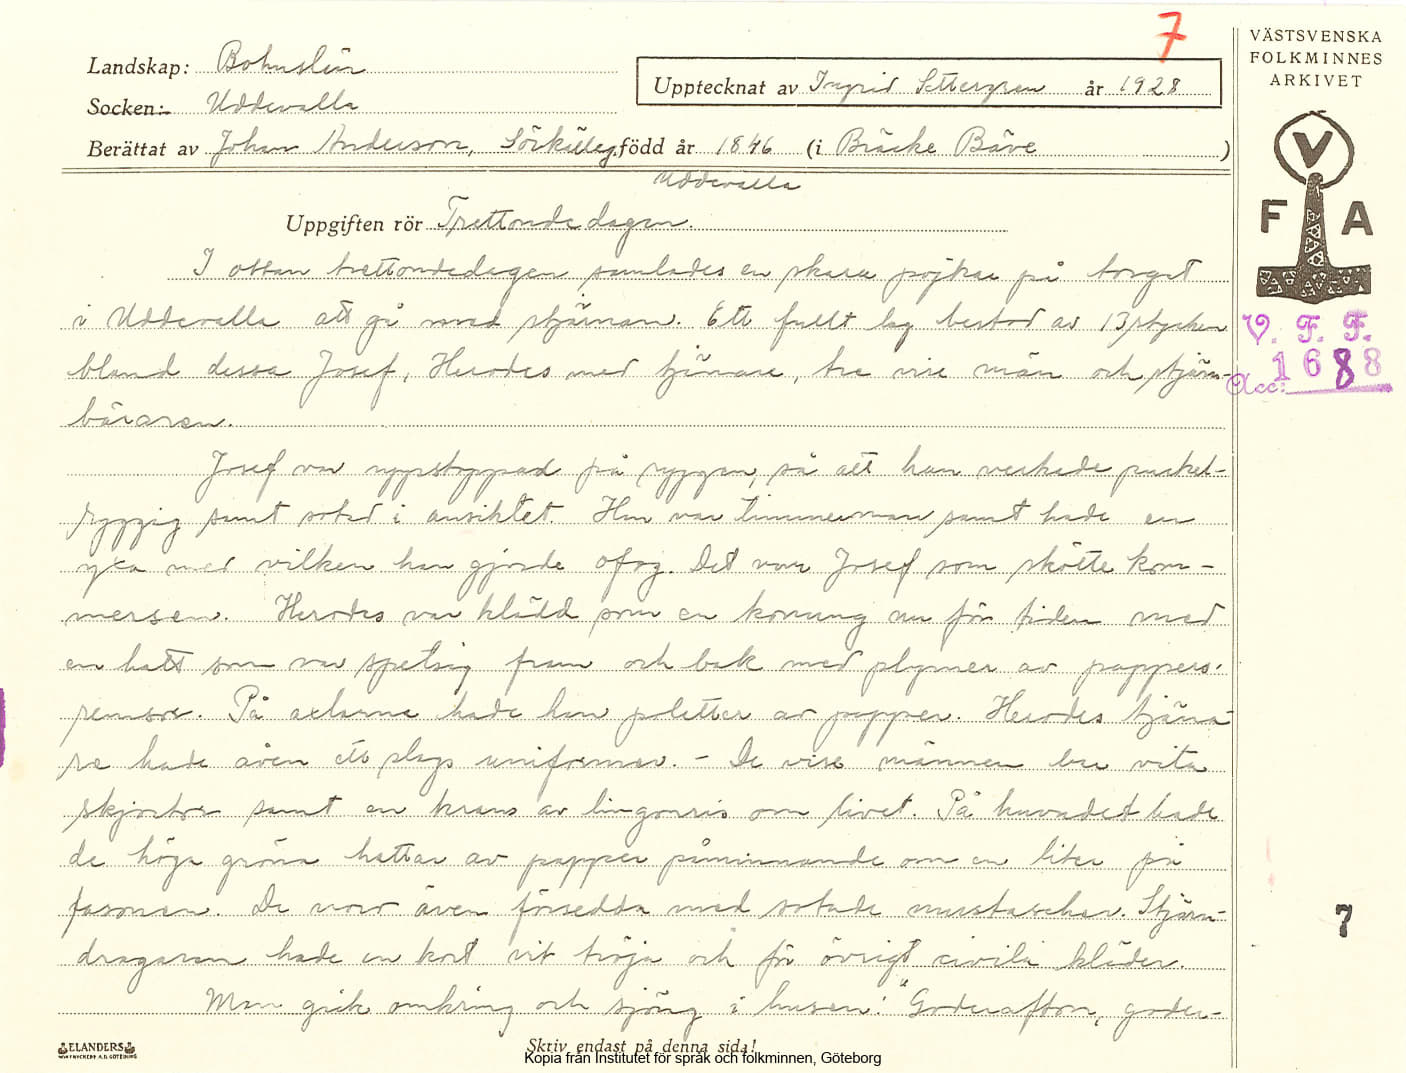 7
VÄSTSVENSKA
FOLKMINNES
ARKIVET
Landskap: Bohuslän
Upptecknat av Ingrid Settergren år 1928
Socken: Uddevalla
Berättat av Johan Anderson, född år 1846 (i Bräcke Bäve)
Uddevalla
Uppgiften rör Trettondedagen.
V
F A
V. F. F.
Acc: 1688
I ottan trettondedagen samlades en skara pojkar på torget
i Uddevalla att gå med stjärnan. Ett fullt lag bestod av 13 stycken
bland dessa Josef, Herodes med tjänare, tre vise män och stjärn-
bäraren.
Josef var uppstoppad på ryggen, så att han verkade puckel-
ryggig samt sotad i ansiktet. Han var timmerman samt hade en
yxa med vilken han gjorde ofog. Det var Josef som skötte kom-
mersen. Herodes var klädd som en konung nu för tiden med
en hatt som var spetsig fram och bak med plymer av pappers-
remsor. På axlarna hade han poletter av papper. Herodes tjäna-
re hade även ett slags uniformer. - De vise männen bar vita
skjortor samt en krans av lingonris om livet. På huvudet hade
de höga gröna hattar av papper påminnande om en liter på
fasonen. De voro även försedda med sotade mustascher. Stjärn-
dragaren hade en kort vit tröja och för övrigt civila kläder.
Man gick omkring och sjöng i husen: "Goderafton, goder-
7
ELANDERS
Skriv endast på denna sida!
Kopia från Institutet för språk och folkminnen, Göteborg